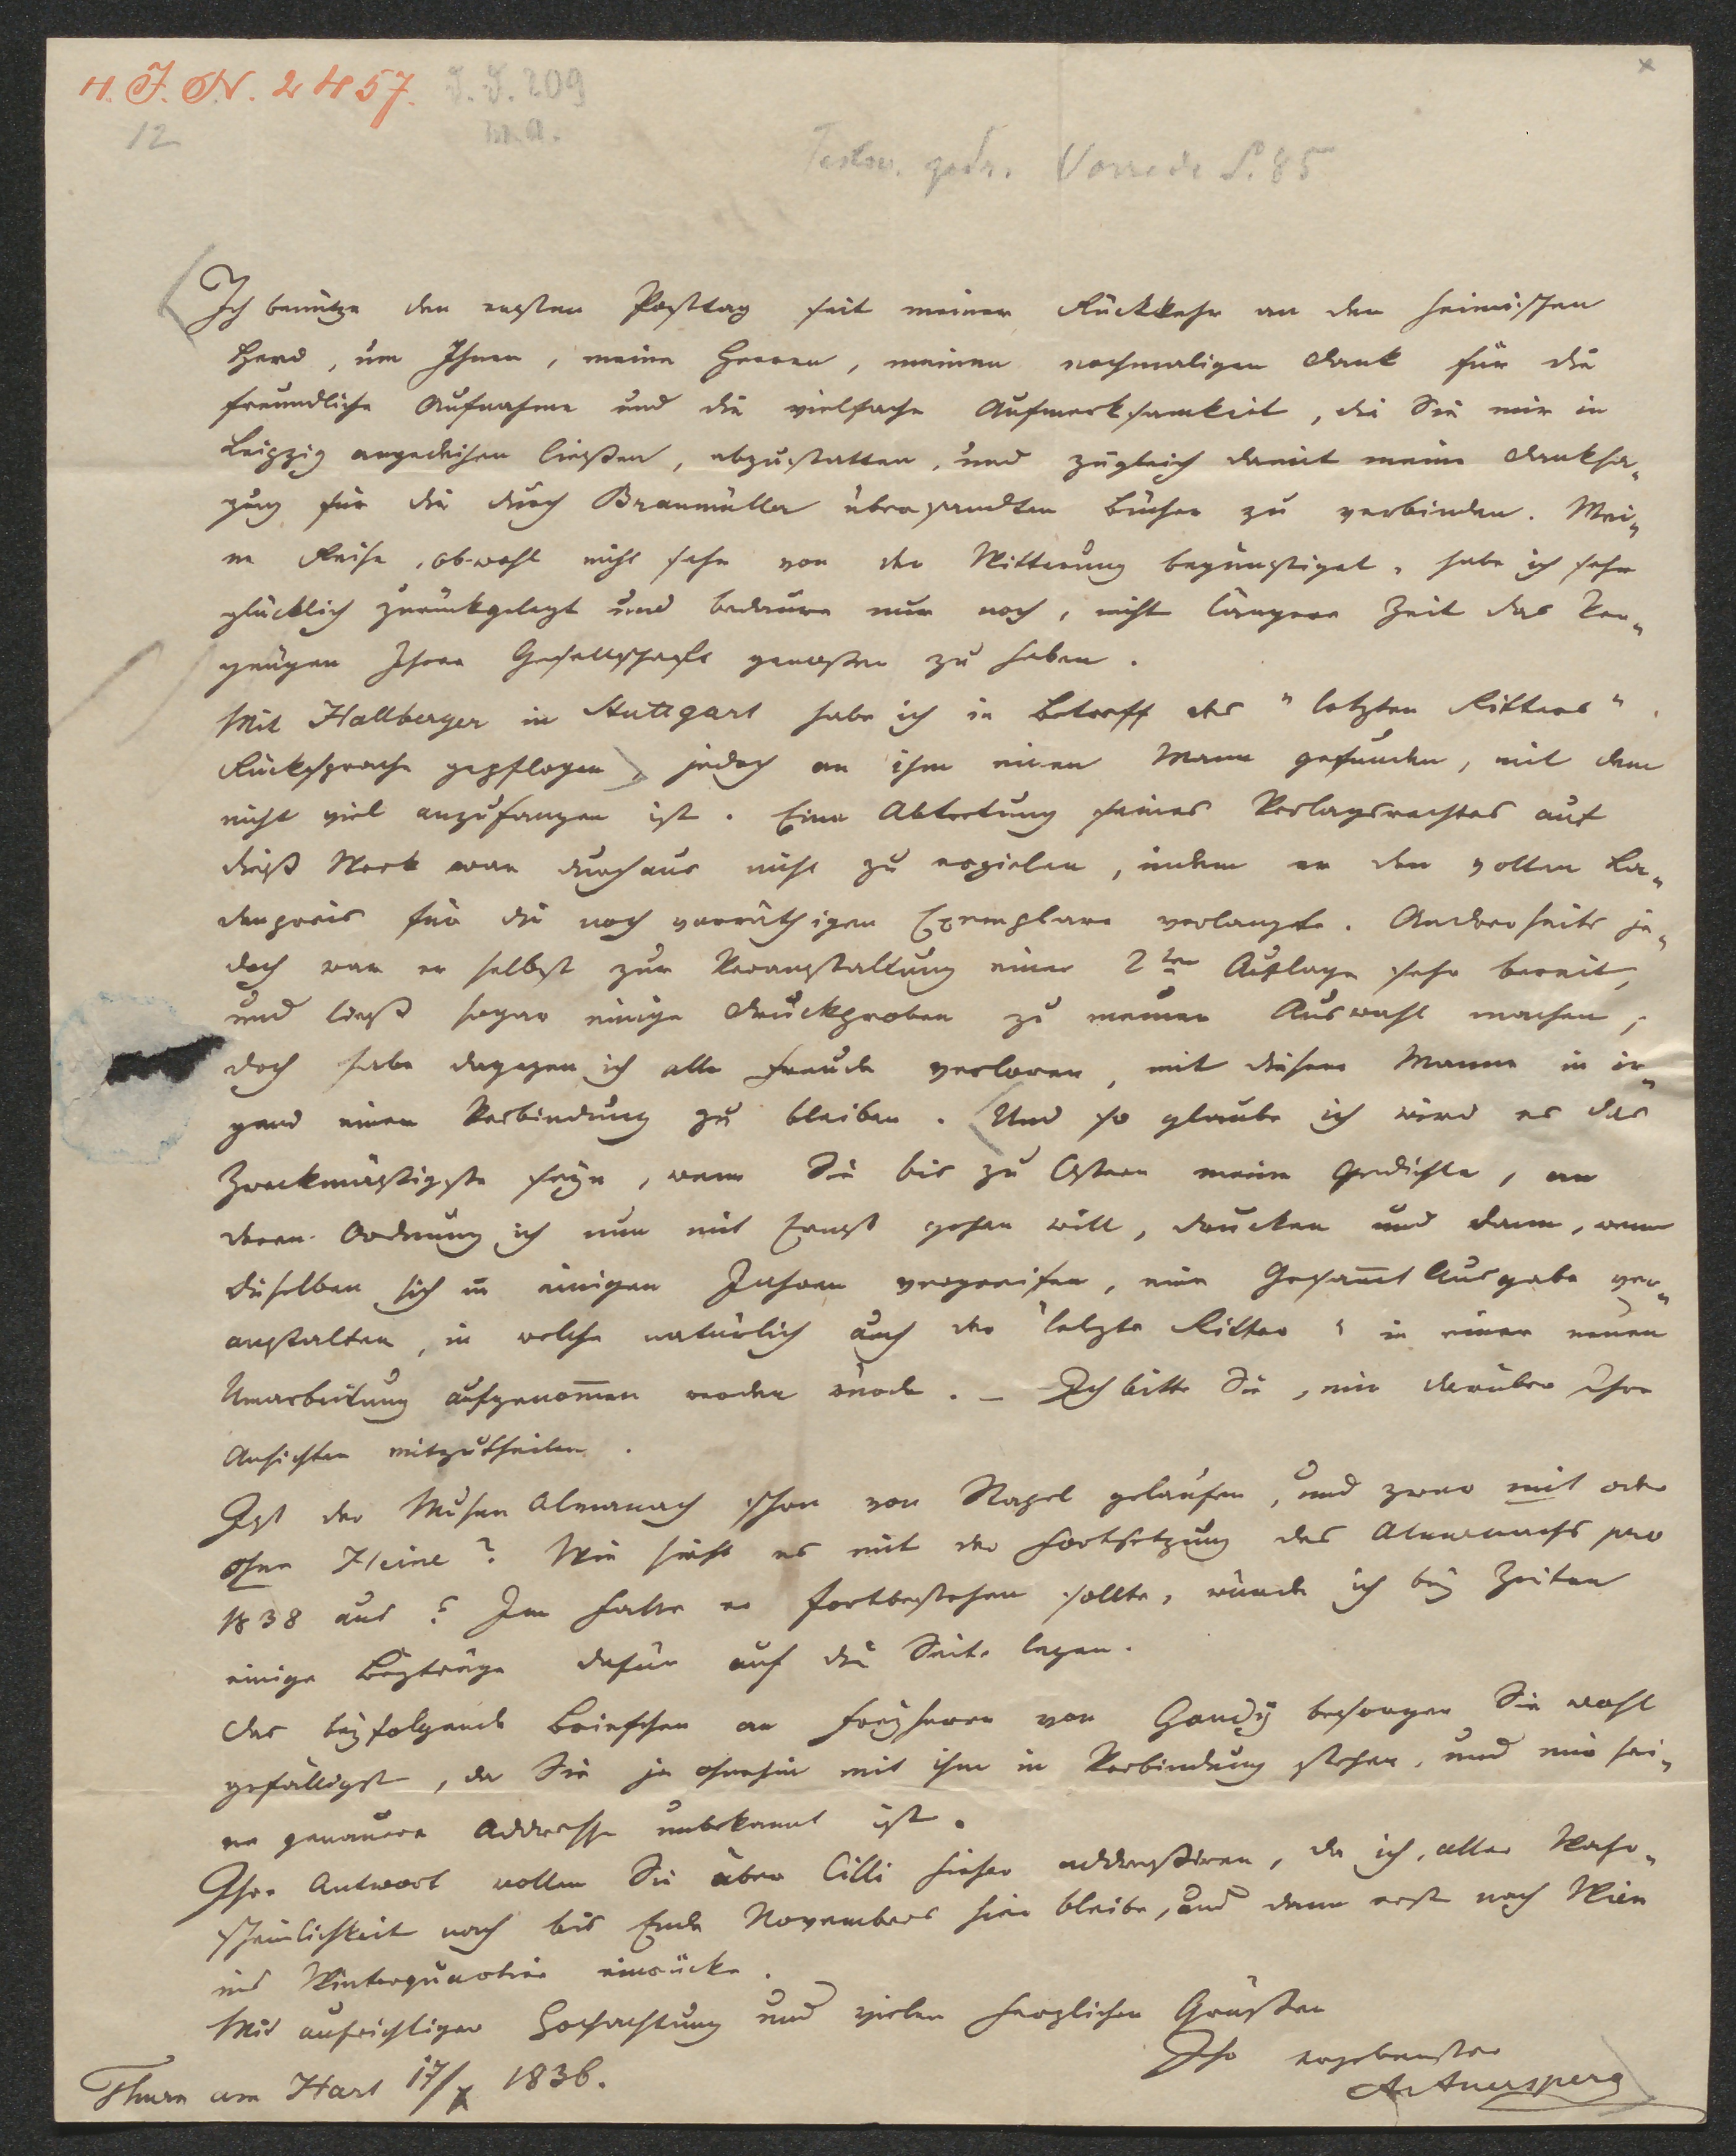 H. I. N. 2457. I. I. 209
12
Teilw. gedr. Vorrede S. 85
Ich benütze den ersten Posttag seit meiner Rückkehr an den heimischen
Herd, um Ihnen, meine Herren, meinen nochmaligen Dank für die
freundliche Aufnahme und die vielfache Aufmerksamkeit, die Sie mir in
Leipzig angedeihen ließen, abzustatten, und zugleich damit meine Danksa„
gung für die durch Braumüller übersandten Bücher zu verbinden. Mei„
ne Reise, obwohl nicht sehr von der Witterung begünstiget, habe ich sehr
glücklich zurückgelegt und bedaure nur noch, nicht längere Zeit das Ver„
gnügen Ihrer Gesellschaft genoßen zu haben.
Mit Hallberger in Stuttgart habe ich in Betreff des "letzten Ritters"
Rücksprache gepflogen, jedoch an ihm einen Mann gefunden, mit dem
nicht viel anzufangen ist. Eine Abtretung seines Verlagsrechtes auf
dieß Werk war durchaus nicht zu erzielen, indem er den vollen La„
denpreis für die noch vorräthigen Exemplare verlangte. Andrerseits je„
doch war er selbst zur Veranstaltung einer 2ten Auflage sehr bereit,
und ließ sogar einige Druckproben zu meiner Auswahl machen,
doch habe dagegen ich alle Freude verloren, mit diesem Manne in ir„
gend einer Verbindung zu bleiben. Und so glaube ich wird es das
Zweckmäßigste seyn, wenn Sie bis zu Ostern meine Gedichte, an
deren Ordnung ich nun mit Ernst gehen will, drucken und dann, wenn
dieselben sich in einigen Jahren vergreifen, eine Gesam̄t Ausgabe ver„
anstalten, in welche natürlich auch der "letzte Ritter" in einer neuen
Umarbeitung aufgenom̄en werden würde. – Ich bitte Sie, mir darüber Ihre
Ansichten mitzutheilen.
Ist der Musen Almanach schon von Stapel gelaufen, und zwar mit oder
ohne Heine? Wie sieht es mit der Fortsetzung des Almanachs pro
1838 aus? Im Falle er fortbestehen sollte, würde ich bey Zeiten
einige Beyträge dafür auf die Seite legen.
Das beyfolgende Briefchen an Freyherrn von Gaudy besorgen Sie wohl
gefälligst, da Sie ja ohnehin mit ihm in Verbindung stehen, und mir sei„
ne genauere Addresse unbekannt ist.
Ihre Antwort wollen Sie über Cilli hieher addressiren, da ich, aller Wahr„
scheinlichkeit nach bis Ende Novembers hier bleibe, und dann erst nach Wien
ins Winterquartier einrücke.
Mit aufrichtiger Hochachtung und vielen herzlichen Grüßen
Ihr ergebenster
AAuersperg
Thurn am Hart 17/X 1836.